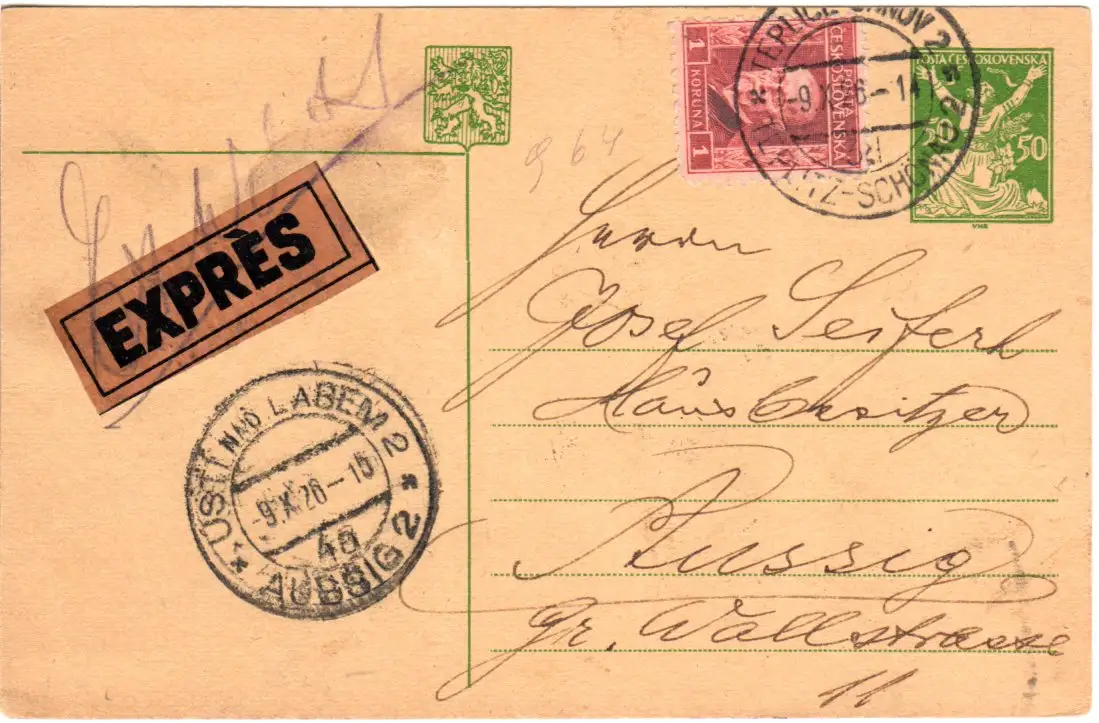 TEPLICE ŠANOV 2
-9.X.26-14
TEPLITZ-SCHÖNAU 2
POŠTA ČESKOSLOVENSKÁ
1 KORUNA 1
POŠTA ČESKOSLOVENSKÁ
50
VHB
964
EXPRÈS
Herrn
Josef Seiferl
Hausbesitzer
Aussig
Gr. Wallstrasse
11
* ÚSTÍ NAD LABEM 2 *
-9.X.26-15
4a
AUSSIG 2